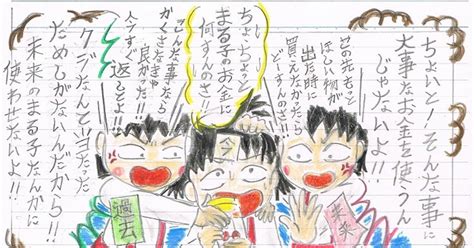 ちょいと、そんな事に
大事なお金を使うん
じゃないよ!!
この先もっと
ほしい物が
出た時に
買えなかったら
どーすんのさ!!
まる子のお金に
何すんのさ!!
こんな事なら
かくさなきゃ
良かった!!
今すぐ
返してよ!!
クジなんて当たった
ためしがないんだから!!
未来のまる子なんかに
使わせないよ!!
過去
未来